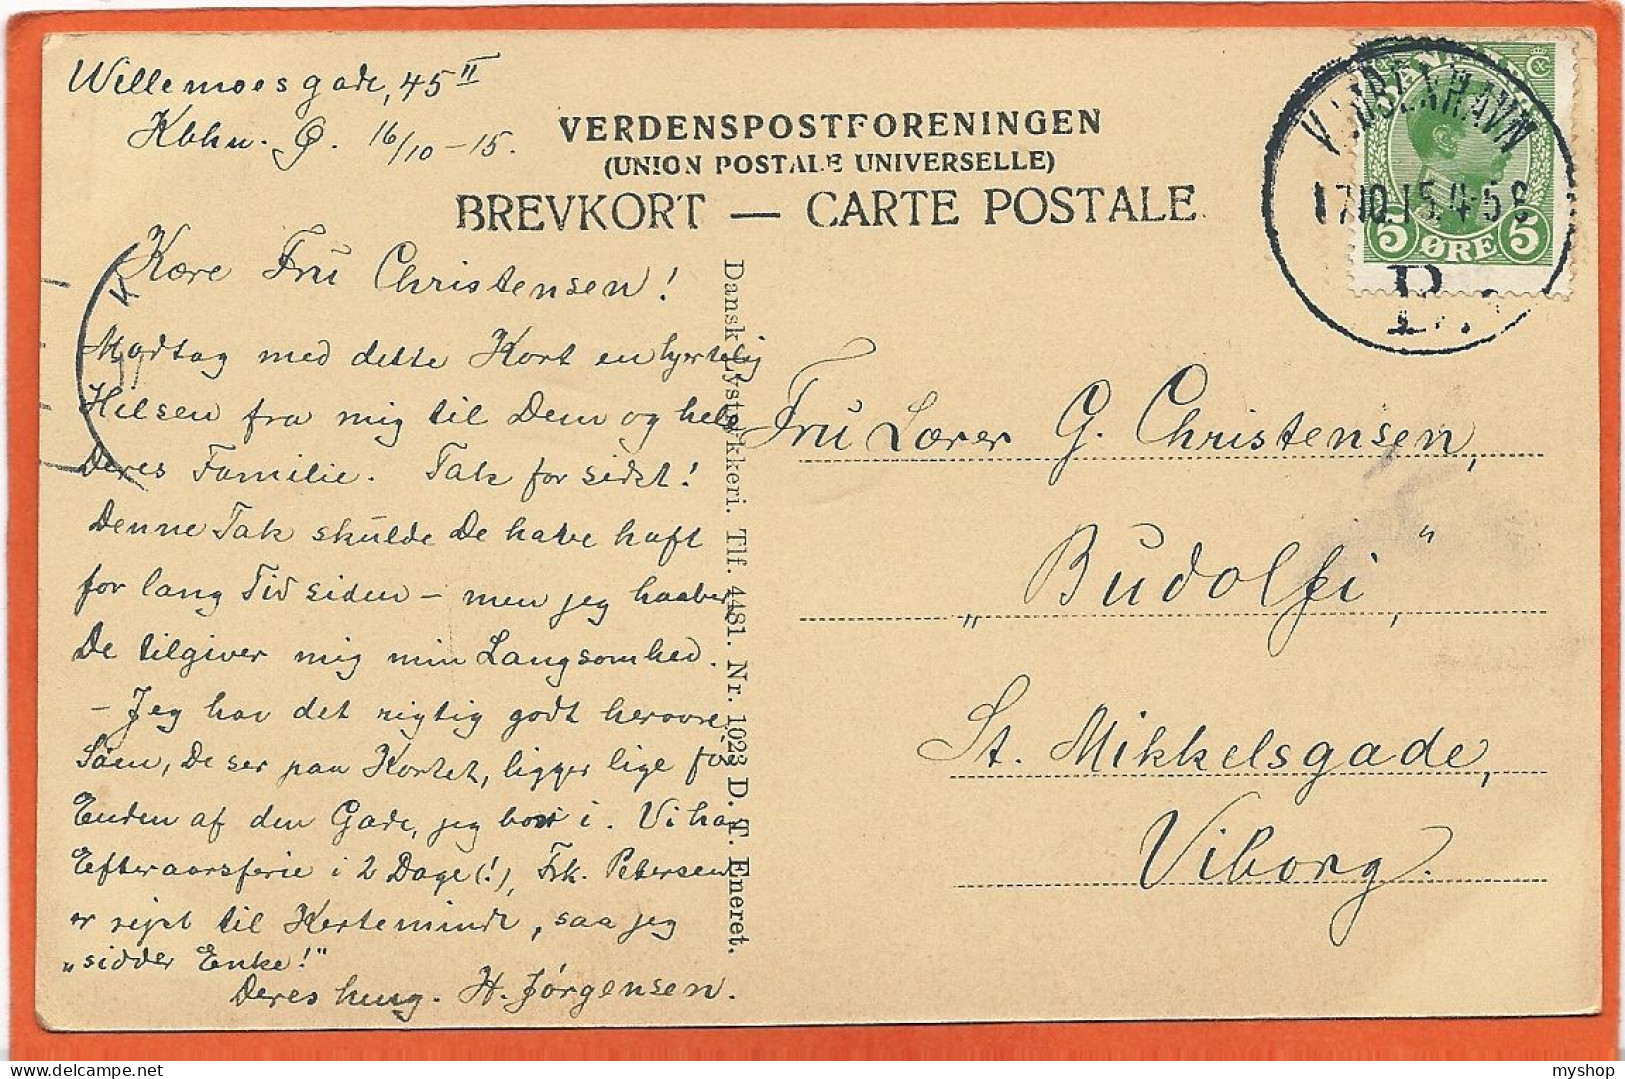 Willemoesgade, 45 II
Kbhn. Ø. 16/10-15.
VERDENSPOSTFORENINGEN
(UNION POSTALE UNIVERSELLE)
BREVKORT — CARTE POSTALE
Kære Frú Christensen!
Modtag med dette Kort en hjertelig
Hilsen fra mig til Dem og hele
Deres Familie. Tak for sidst!
Denne Tak skúlde De have haft
for lang Tid siden – men jeg haaber
De tilgiver mig min Langsomhed.
– Jeg har det rigtig godt herovre,
Søen, De ser paa Kortet, ligger lige for
Enden af den Gade, jeg bor i. Vi har
Efteraarsferie i 2 Dage (!), Frk. Petersen
er rejst til Kerteminde, saa jeg
„sidder Enke!"
Deres heng. H. Jörgensen.
Dansk Lystrykkeri. Tlf. 4481. Nr. 1023 D. T. Eneret.
KJØBENHAVN
17.10.15. 4-5 E
5 ØRE 5
Frú Lærer G. Christensen,
„Búdolfi",
St. Mikkelsgade,
Viborg.
K
myshop